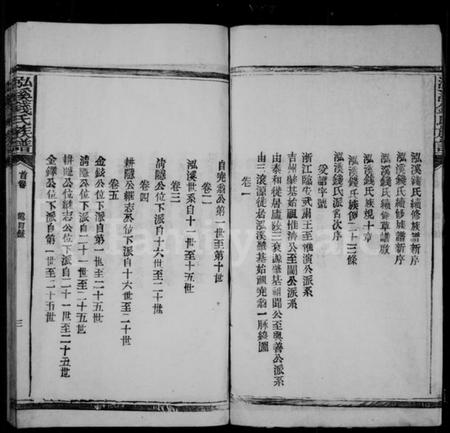 泓溪錢氏續修族譜新序
泓溪錢氏續修族譜新序
泓溪錢氏續修草譜敘
泓溪錢氏族規十章
泓溪錢氏族便二十三條
泓溪錢氏派名次序
受譜字號
浙江臨安武肅王至惟演公派系
吉州肇基始祖惟濟公至聞公派系
由泰和徙居廬陵三哀肇基祖聞公至與善公派系
由三滾源徙老泓溪肇基始祖完翁一脈總圖
卷一
自完翁公第一世至第十世
卷二
泓溪世系自十一世至十五世
卷三
清隱公位下派自十六世至二十世
卷四
耕隱公繼志公位下派自十六世至二十世
卷五
金鉉公位下派自第一世至二十五世
清隱公位下派自二十一世至二十五世
耕隱公繼志公位下派自二十一世至二十五世
金鐸公位下派自第一世至二十五世
泓溪錢氏族譜
首卷
總目錄
三